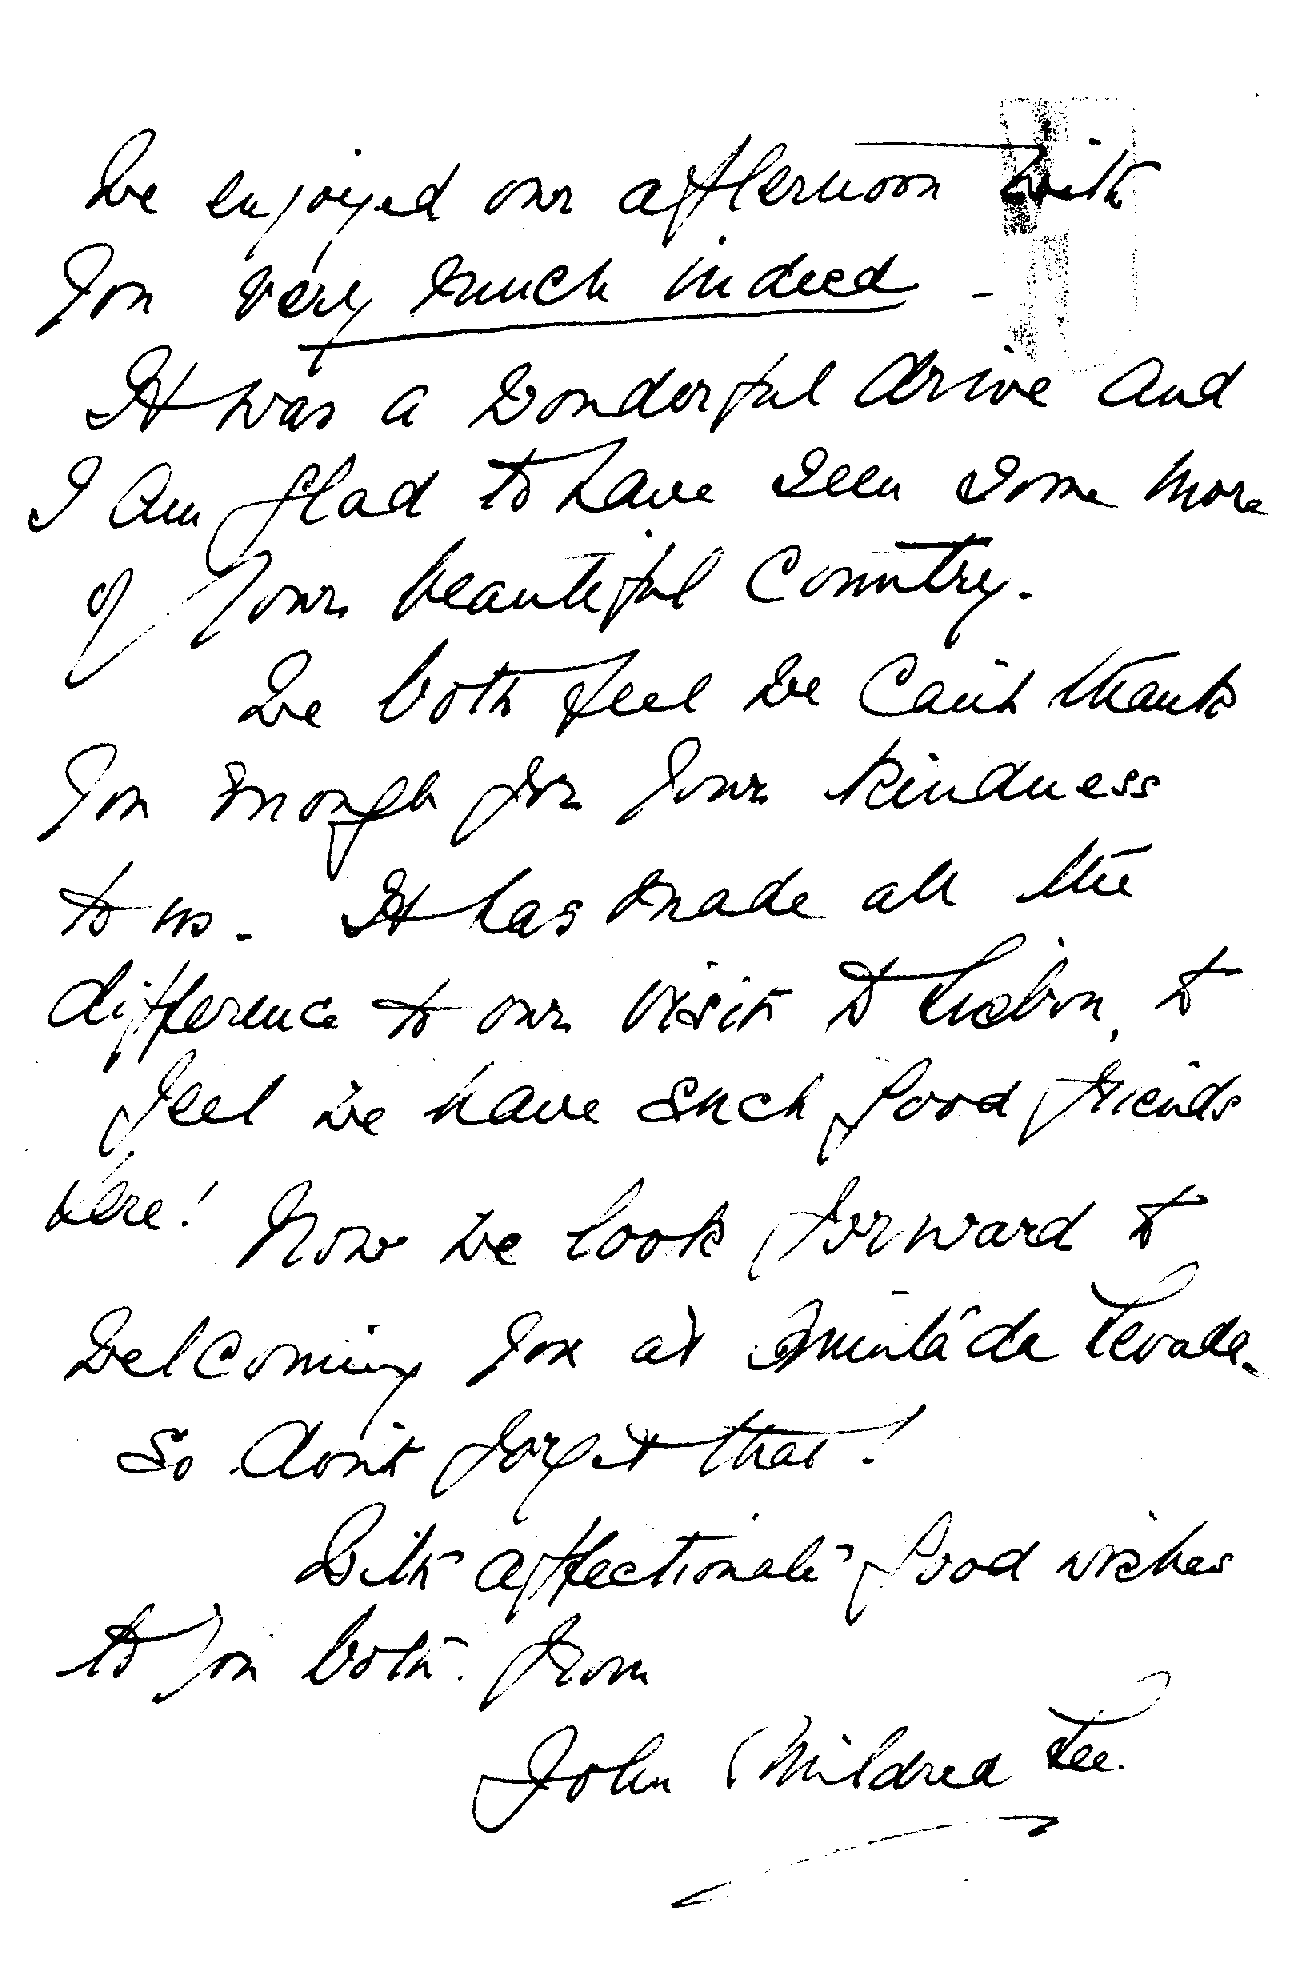 We enjoyed our afternoon with
you very much indeed -
It was a wonderful drive and
I am glad to have seen some more
of your beautiful Country.
We both feel we can't thank
you enough for your kindness
to us. It has made all the
difference to our visit to Lisbon, to
feel we have such good friends
here! Now we look forward to
welcoming you at Quinta da Levada.
So don't forget that!
With affectionate good wishes
to you both. from
John & Mildred Lee.